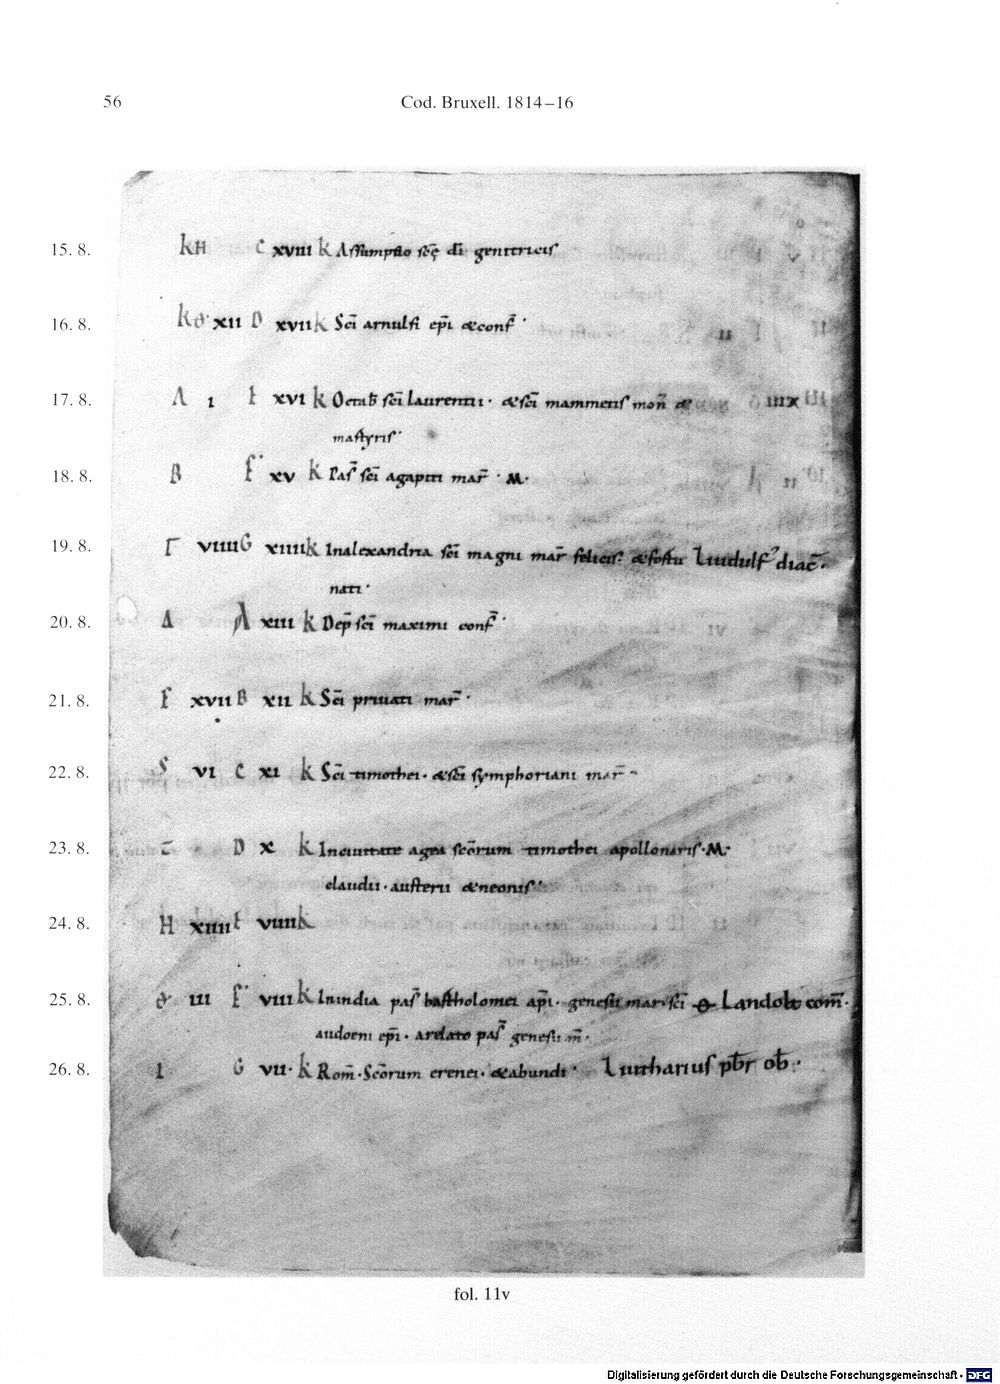 56 Cod. Bruxell. 1814–16
15. 8. kH C xviii k Assumptio scē dī genitricis
16. 8. kθ· xii D xvii k Scī arnulfi ep̄i &conf̄·
17. 8. Λ i E xvi k Octab̄ scī laurentii· &scī mammetis mon̄ &
martyris·
18. 8. B F· xv k Pas̄ scī agapiti mar̄· M·
19. 8. Γ viiii G xiiii k Inalexandria scī magni mar̄ felicis· &fostu Liudulf diac̄·
nati·
20. 8. Δ A xiii k Dep̄ scī maximi conf̄·
21. 8. F xvii B xii k Scī priuati mar̄·
22. 8. S vi C xi k Scī timothei· &scī symphoriani mar̄
23. 8. Z D x k Inciuitate agea scōrum timothei apollonaris· M·
claudii· austerii &neonis·
24. 8. H xiiii E viiii k
25. 8. θ iii F· viii k Inindia pas̄ bartholomei ap̄i· genesii mar· scī Landolt com̄·
audoeni ep̄i· arelato pas̄ genesii m̄·
26. 8. I G vii· k Rom̄· Scōrum erenei· &abundi· Liutharius pb̄r ob̄·
fol. 11v
Digitalisierung gefördert durch die Deutsche Forschungsgemeinschaft - DFG